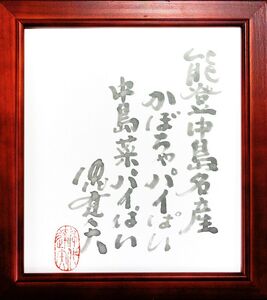 能登中島名産
かぼちゃパイぱい
中島菜パイぱい